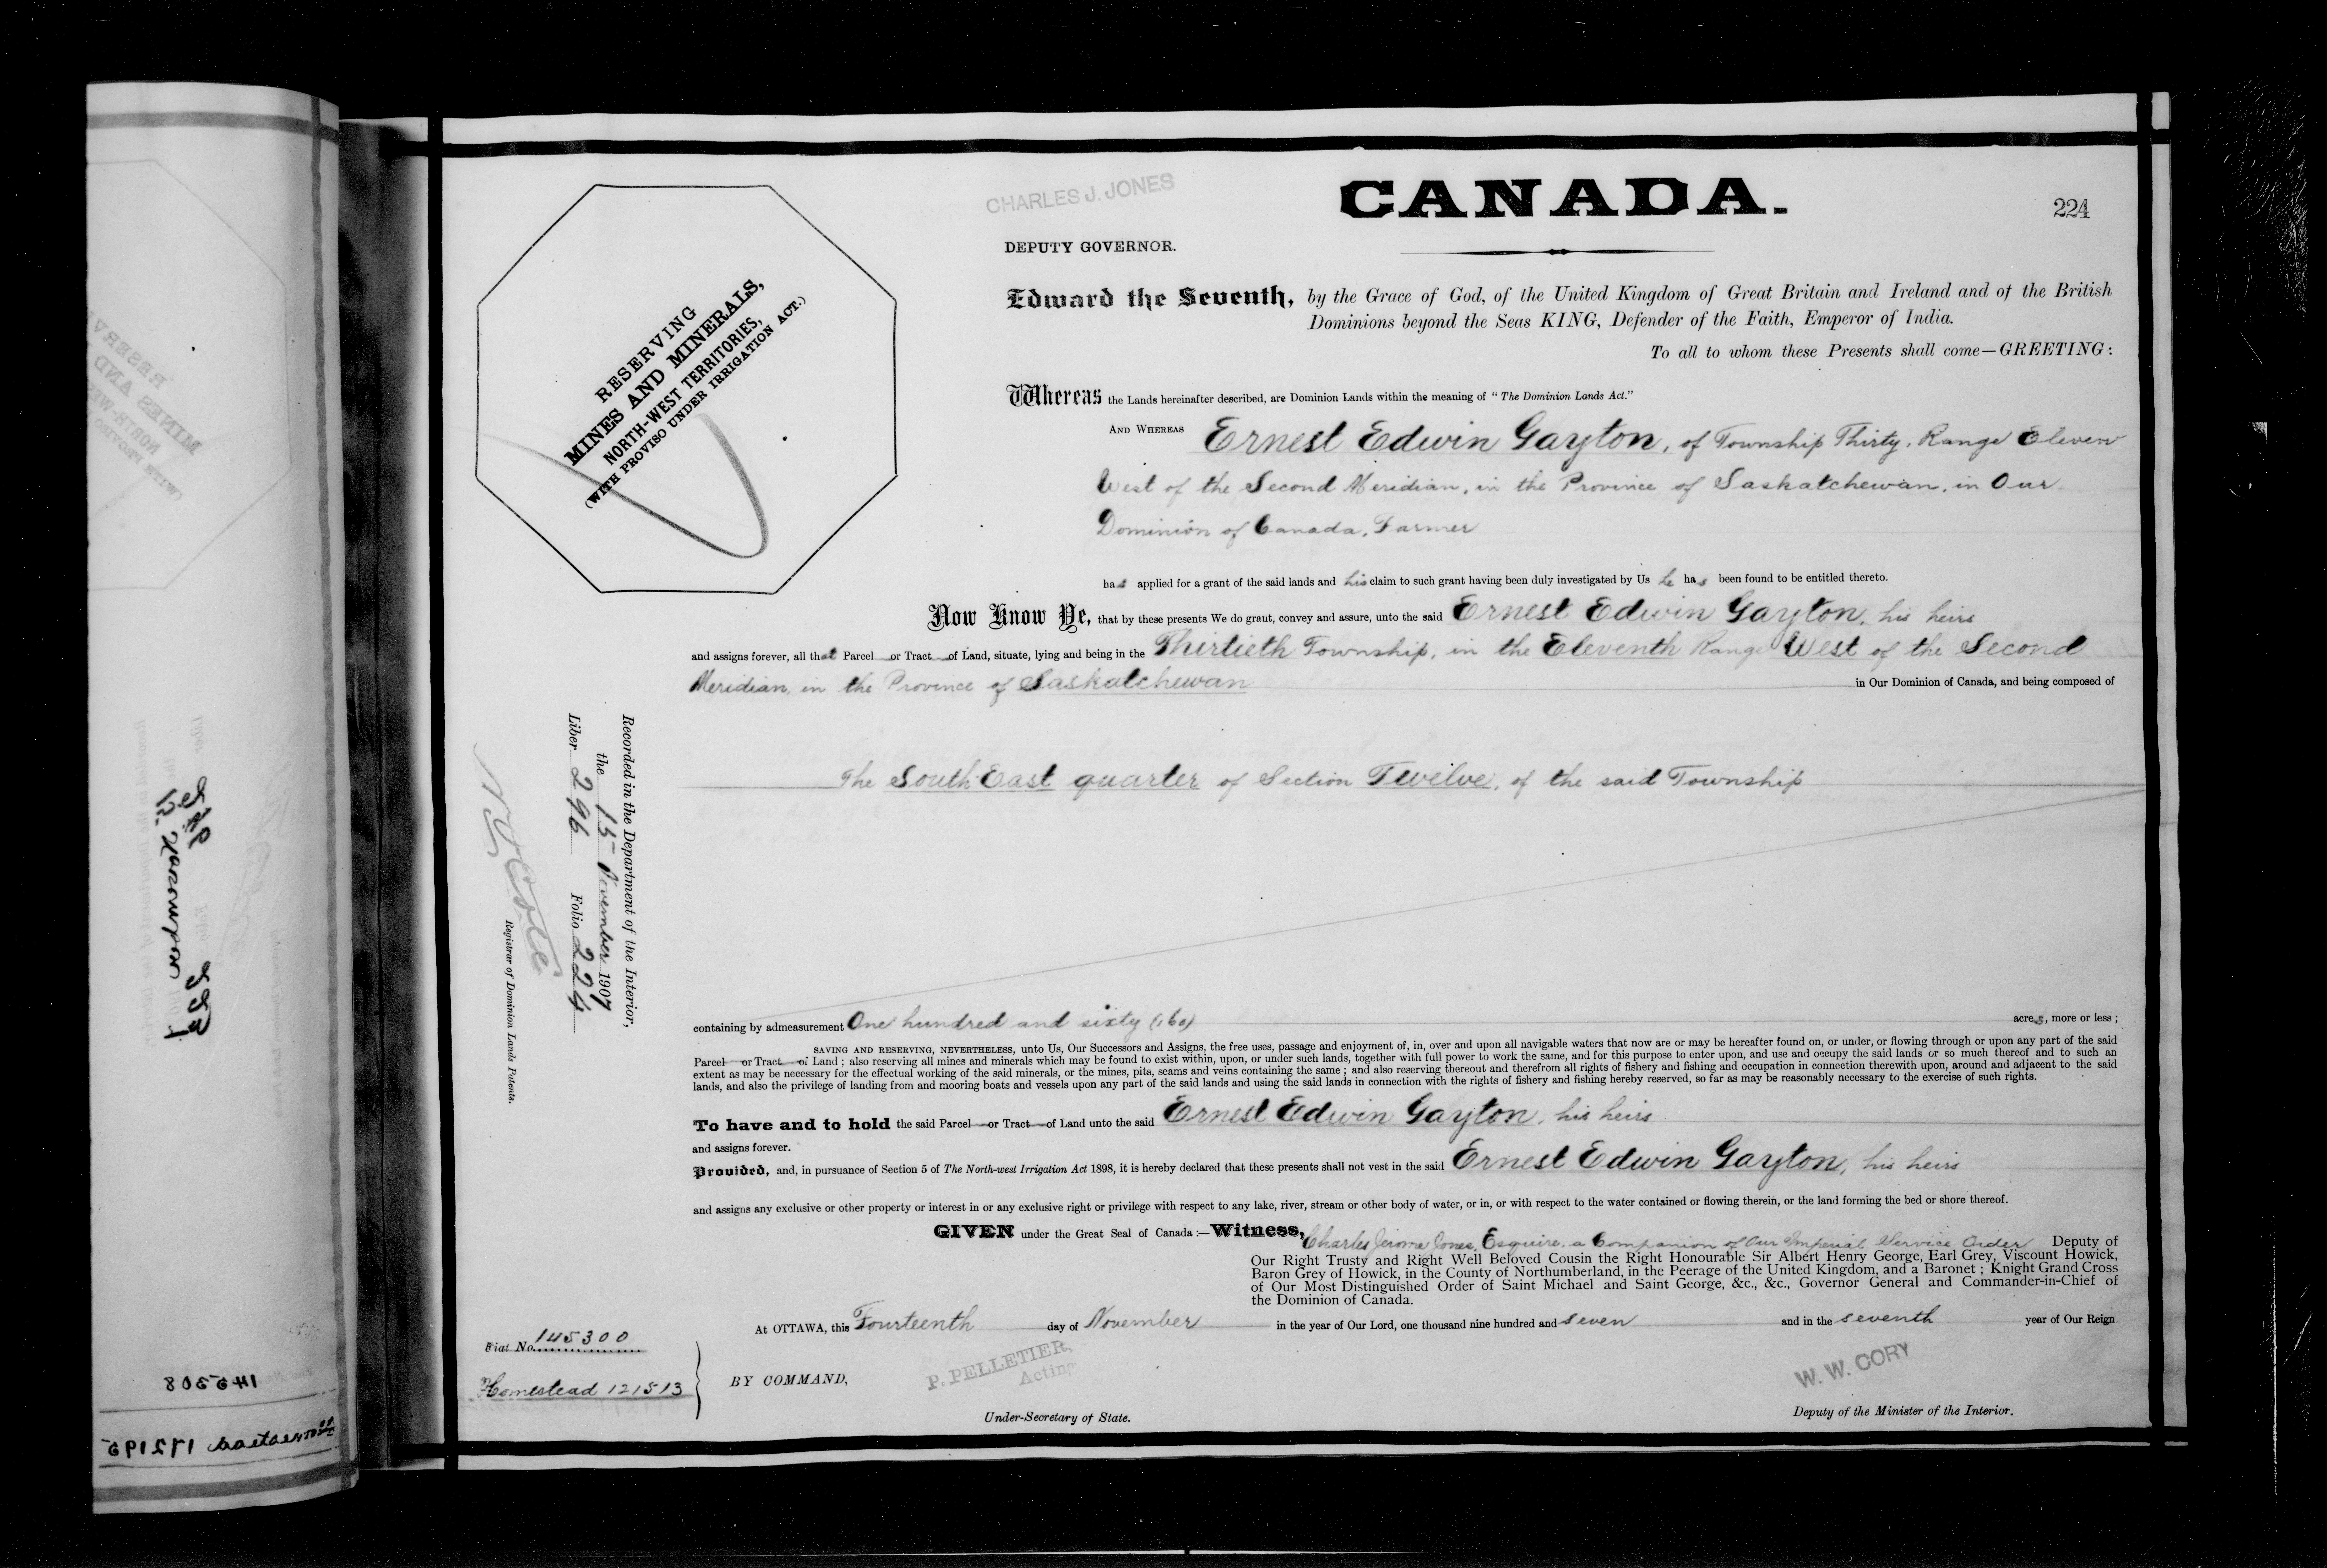 CANADA.
224
CHARLES J. JONES
DEPUTY GOVERNOR.
RESERVING
MINES AND MINERALS,
NORTH-WEST TERRITORIES,
(WITH PROVISO UNDER IRRIGATION ACT.)
Edward the Seventh, by the Grace of God, of the United Kingdom of Great Britain and Ireland and of the British
Dominions beyond the Seas KING, Defender of the Faith, Emperor of India.
To all to whom these Presents shall come—GREETING:
Whereas the Lands hereinafter described, are Dominion Lands within the meaning of "The Dominion Lands Act."
AND WHEREAS Ernest Edwin Gayton, of Township Thirty, Range Eleven
West of the Second Meridian, in the Province of Saskatchewan, in Our
Dominion of Canada, Farmer
has applied for a grant of the said lands and his claim to such grant having been duly investigated by Us he has been found to be entitled thereto.
Now Know Ye, that by these presents We do grant, convey and assure, unto the said Ernest Edwin Gayton, his heirs
and assigns forever, all that Parcel or Tract of Land, situate, lying and being in the Thirtieth Township, in the Eleventh Range West of the Second
Meridian, in the Province of Saskatchewan in Our Dominion of Canada, and being composed of
The South East quarter of Section Twelve, of the said Township
containing by admeasurement One hundred and sixty (160) acres, more or less;
SAVING AND RESERVING, NEVERTHELESS, unto Us, Our Successors and Assigns, the free uses, passage and enjoyment of, in, over and upon all navigable waters that now are or may be hereafter found on, or under, or flowing through or upon any part of the said
Parcel or Tract of Land; also reserving all mines and minerals which may be found to exist within, upon, or under such lands, together with full power to work the same, and for this purpose to enter upon, and use and occupy the said lands or so much thereof and to such an
extent as may be necessary for the effectual working of the said minerals, or the mines, pits, seams and veins containing the same; and also reserving thereout and therefrom all rights of fishery and fishing and occupation in connection therewith upon, around and adjacent to the said
lands, and also the privilege of landing from and mooring boats and vessels upon any part of the said lands and using the said lands in connection with the rights of fishery and fishing hereby reserved, so far as may be reasonably necessary to the exercise of such rights.
To have and to hold the said Parcel or Tract of Land unto the said Ernest Edwin Gayton, his heirs
and assigns forever.
Provided, and, in pursuance of Section 5 of The North-west Irrigation Act 1898, it is hereby declared that these presents shall not vest in the said Ernest Edwin Gayton, his heirs
and assigns any exclusive or other property or interest in or any exclusive right or privilege with respect to any lake, river, stream or other body of water, or in, or with respect to the water contained or flowing therein, or the land forming the bed or shore thereof.
GIVEN under the Great Seal of Canada:—Witness, Charles Jerome Jones, Esquire, a Companion of Our Imperial Service Order Deputy of
Our Right Trusty and Right Well Beloved Cousin the Right Honourable Sir Albert Henry George, Earl Grey, Viscount Howick,
Baron Grey of Howick, in the County of Northumberland, in the Peerage of the United Kingdom, and a Baronet; Knight Grand Cross
of Our Most Distinguished Order of Saint Michael and Saint George, &c., &c., Governor General and Commander-in-Chief of
the Dominion of Canada.
At OTTAWA, this Fourteenth day of November in the year of Our Lord, one thousand nine hundred and seven and in the seventh year of Our Reign
BY COMMAND,
P. PELLETIER,
Acting
Under-Secretary of State.
W. W. CORY
Deputy of the Minister of the Interior.
Fiat No. 145300
Homestead 121513
Recorded in the Department of the Interior,
the 15 November 1907
Liber 296 Folio 224
Registrar of Dominion Lands Patents.